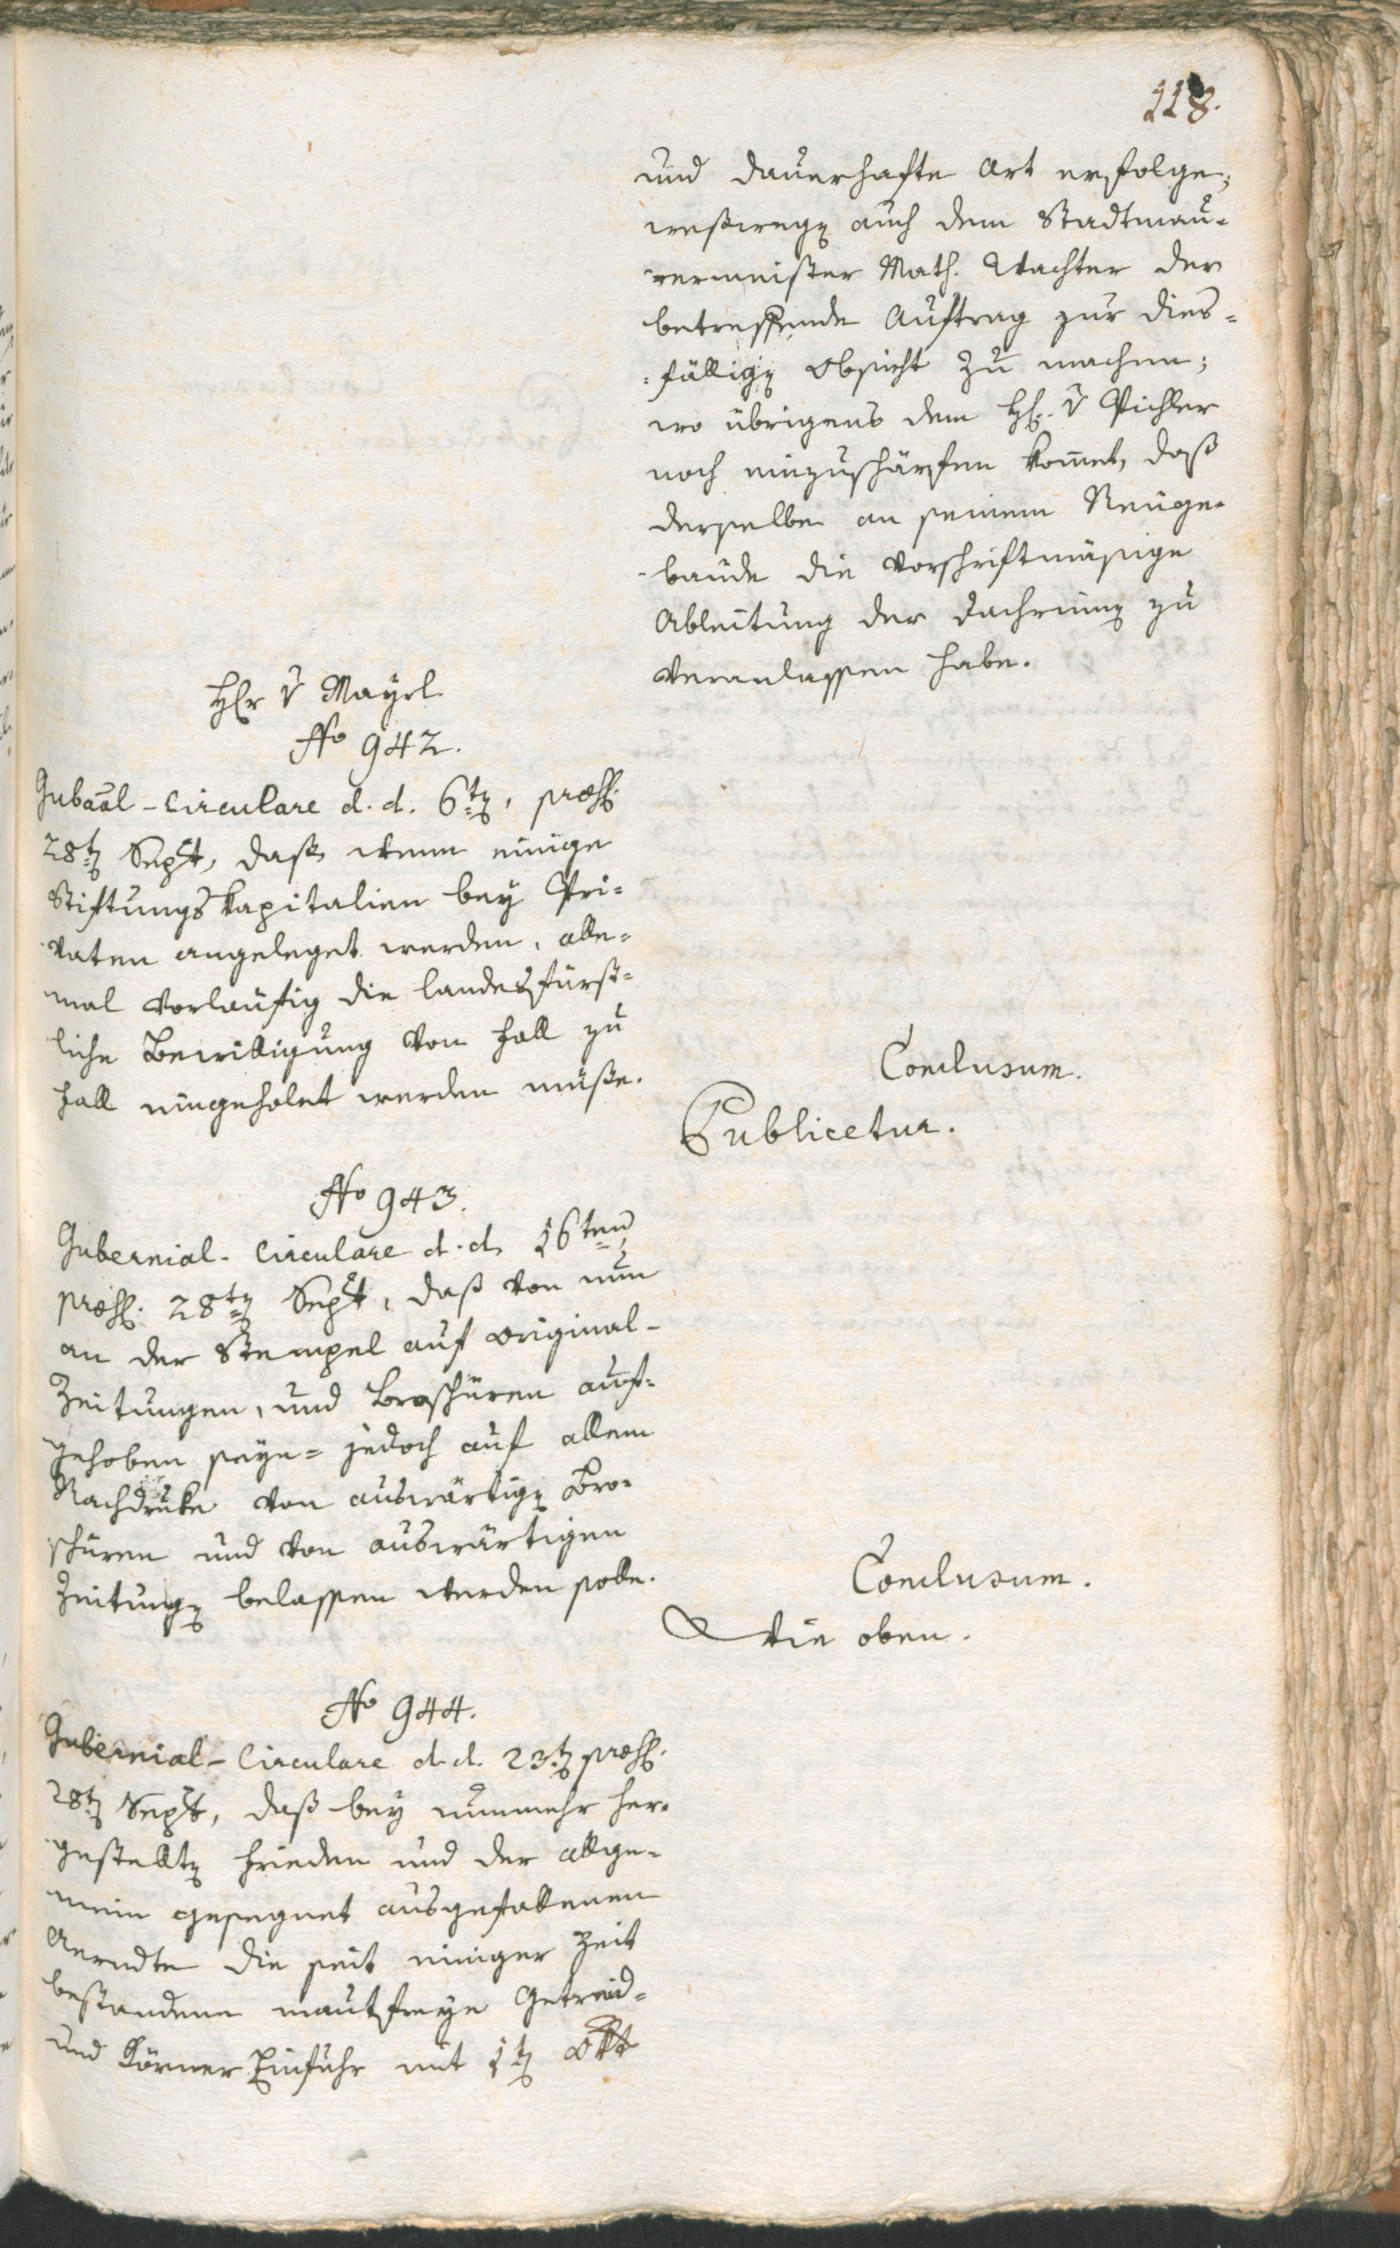 118.
und dauerhafte Art erfolge;
weßweg auch dem Stadtmau-
-rermeister Math. Wachter der
betreffende Auftrag zur dies=
=fällig Obsicht zu machen;
wo übrigens dem H. v Pichler
noch einzuschärfen kom̄et, daß
derselbe an seinem Neuge-
-baude die vorschriftmäsige
Ableitung der Dachrinn zu
veranlassen habe.
Hr v Mayrl.
No 942.
Gubaal-Circulare d. d. 6t, præs.
28t Sept, daß, wenn einige
Stiftungskapitalien bey Pri=
vaten angeleget werden, alle=
mal vorläufig die landesfürst=
liche Bewilligung von Fall zu
Fall eingeholet werden müße.
Conclusum.
Publicetur.
No 943.
Gubernial-Circulare d. d. 16ten,
præs. 28t Sept, daß von nun
an der Stempel auf Original-
Zeitungen, und Broschüren auf=
gehoben seyn= jedoch auf allem
Nachdruke von auswärtig Bro=
schüren und von auswärtigen
Zeitung belassen werden solle.
Conclusum.
Wie oben.
No 944.
Gubernial-Circulare d. d. 23t præs.
28t Sept, daß bey nunmehr her=
gestellt Frieden und der allge=
mein gesegnet ausgefallenen
Aerndte die seit einiger Zeit
bestandene mautfreye Getreid=
und Körner Einfuhr mit 1t Okt